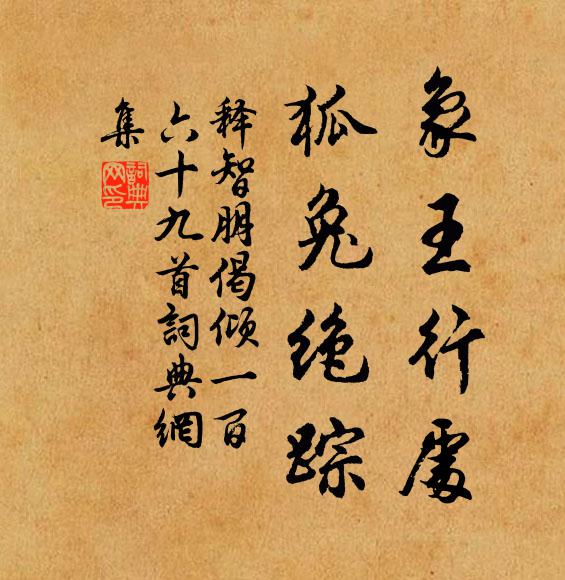 象王行處
狐兔绝踪
释智朋偈倾一百
六十九首詞典網
集
詞典
网印